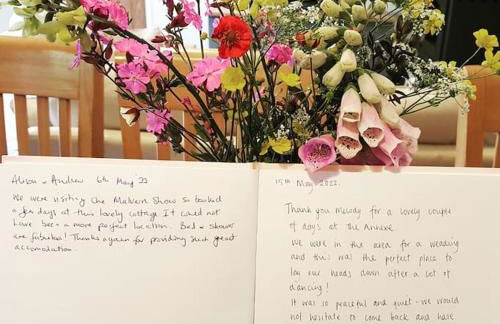 Alison & Andrew 6th May '22
We were visiting the Malvern Show so booked
a few days at this lovely cottage It could not
have been a more perfect location. Bed & shower
are fabulous! Thanks again for providing such great
accomodation.
15th May 2022.
Thank you Melody for a lovely couple
of days at the Annexe.
We were in the area for a wedding
and this was the perfect place to
lay our heads down after a lot of
dancing!
It was so peaceful and quiet - we would
not hesitate to come back and have